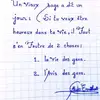 Un vieux page a dit un
jour : Si tu veux être
heureux dans ta vie, il faut
s'en foutre de 2 choses :
1. la vie des gens.
2. l'avis des gens.